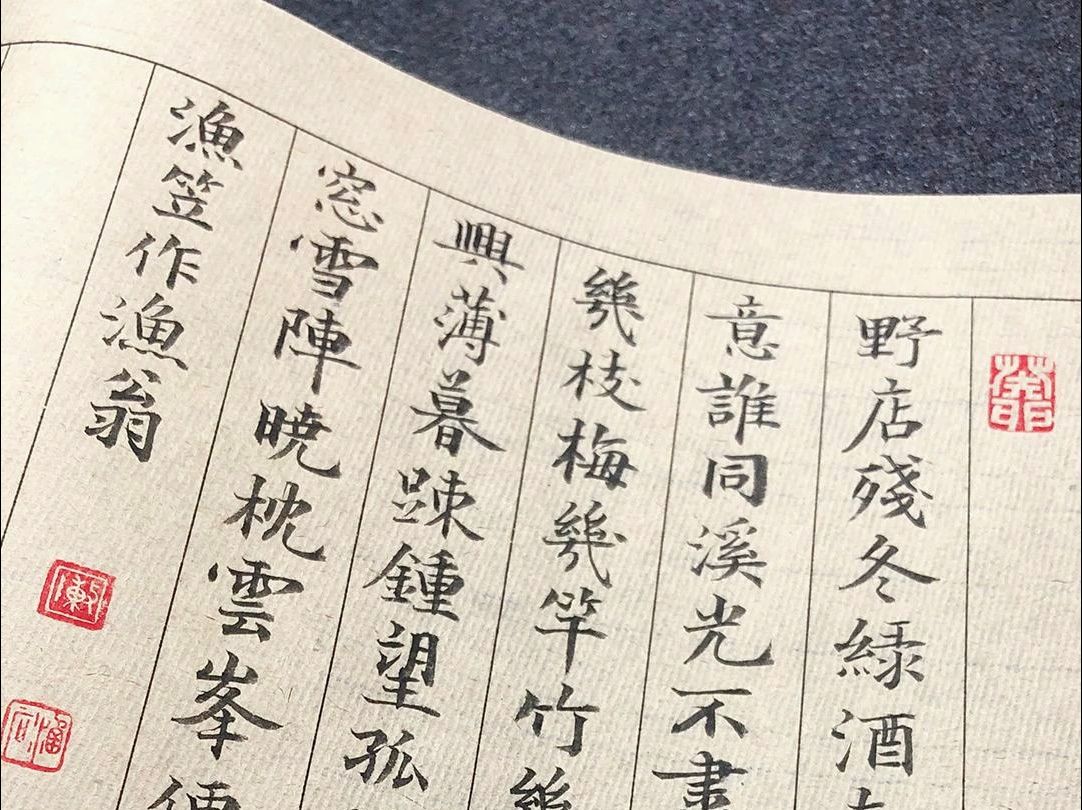 野店殘冬綠酒
意誰同溪光不盡
幾枝梅幾竿竹幾
興薄暮踈鍾望孤
窓雪陣曉枕雲峯便
漁笠作漁翁